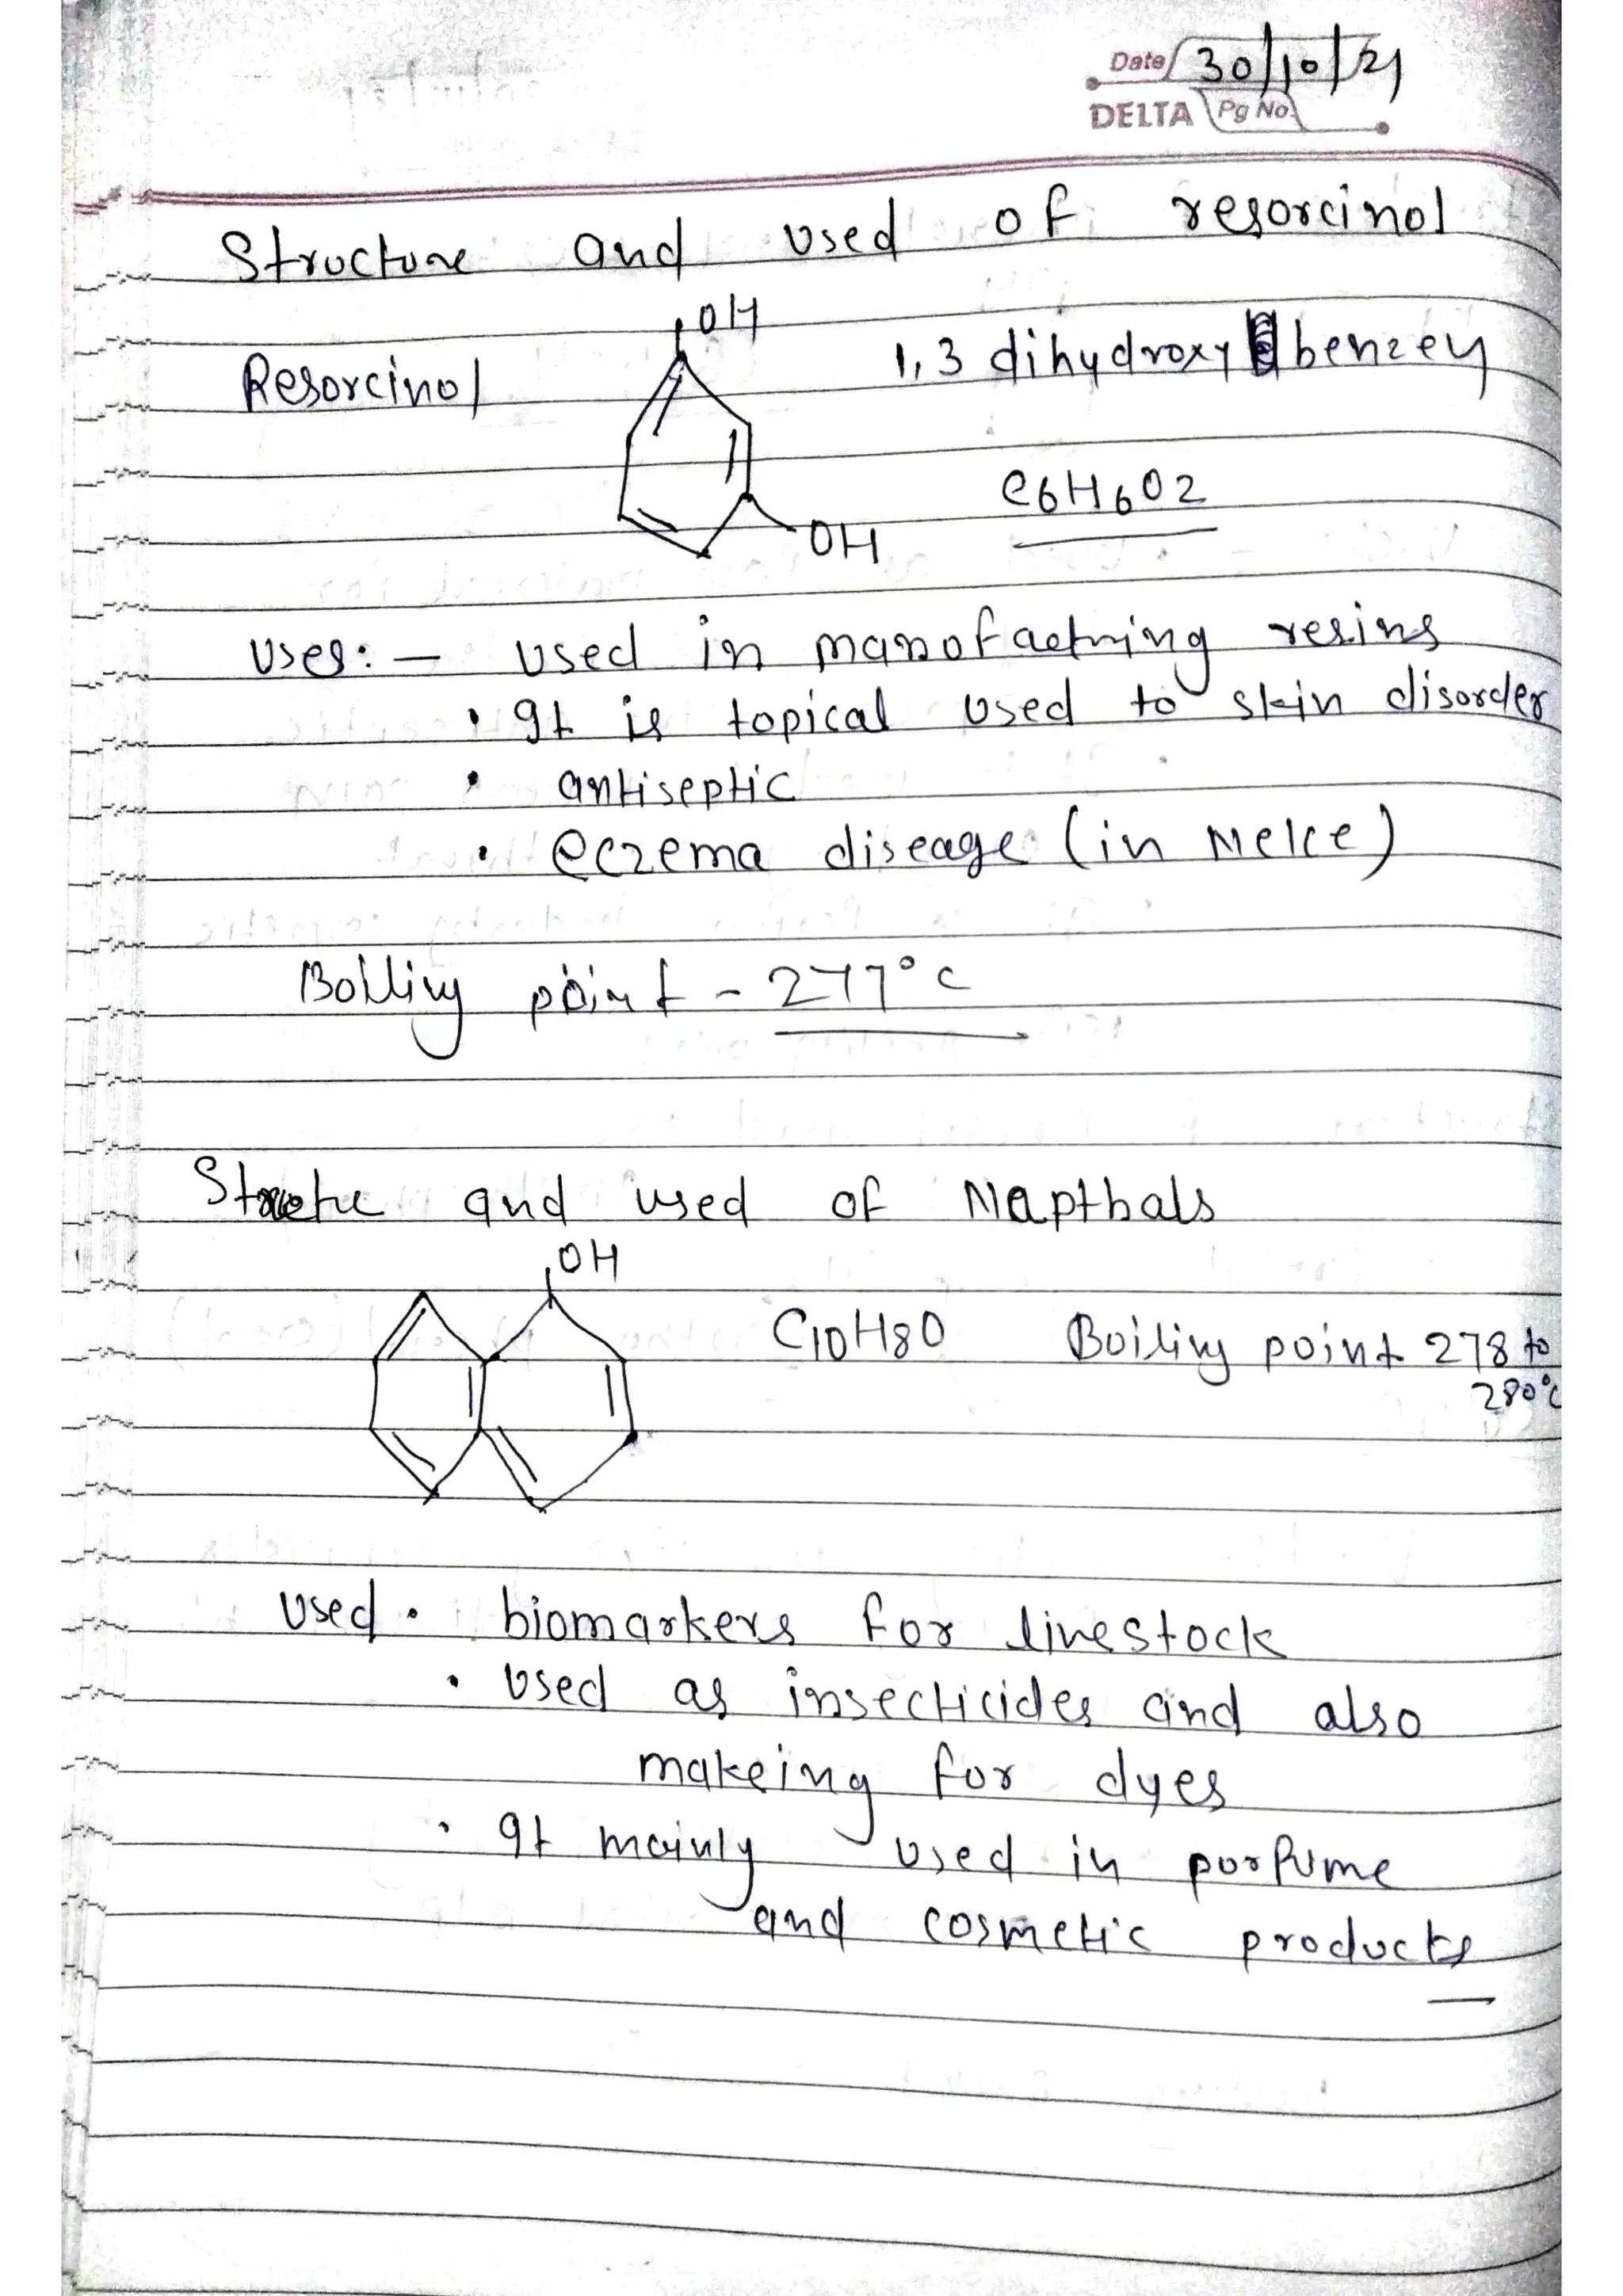 Date 30/10/21
DELTA Pg No.
Structure and used of resorcinol
OH
Resorcinol 1,3 dihydroxy benzey
C6H6O2
OH
Uses:- used in manofactring resins
• It is topical used to skin disorder
• antiseptic
• eczema diseage (in Melce)
Boiling point - 277°c
and used of Napthals
OH
C10H8O Boiling point 278 to
280°c
Used • biomarkers for livestock
• Used as insecticides and also
makeing for dyes
• It mainly used in porfume
and cosmetic products